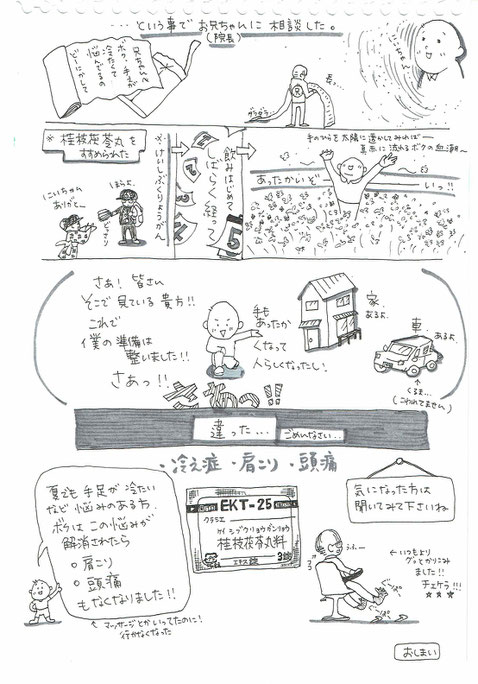 ...という事でお兄ちゃんに相談した。
(院長)
兄ちゃんへ
ボク、手が
冷たくて
悩んでるの
どーにかして
長...
※桂枝茯苓丸を
すすめられた
にいちゃん
ありがとー
ほらよ
どさり
※けいしぶくりょうがん
飲みはじめて
しばらく経って
5
手のひらを太陽に透かしてみれば――
真赤に流れるボクの血潮～
あったかいぞ
いっ!!
さあ!皆さん
そこで見ている貴方!!
これで
僕の準備は
整いました!!
さあっ!!
手も
あったかく
なって
人らしくなったし!
家
あるよ
車
あるよ
くるま...
(こわれてません)
さあっ!!
違った...
ごめんなさい...
・冷え症・肩こり・頭痛
夏でも手足が冷たい
など悩みのある方、
ボクはこの悩みが
解消されたら
○肩こり
○頭痛
もなくなりました!!
マッサージとかいってたのに!
行かなくなった
EKT-25
クラシエ
ケイシブクリョウガンリョウ
桂枝茯苓丸料
エキス錠
気になった方は
聞いてみて下さいね
うふー
いつもより
チェケラ!!!
ぐっぱ
ぐっぱ
おしまい